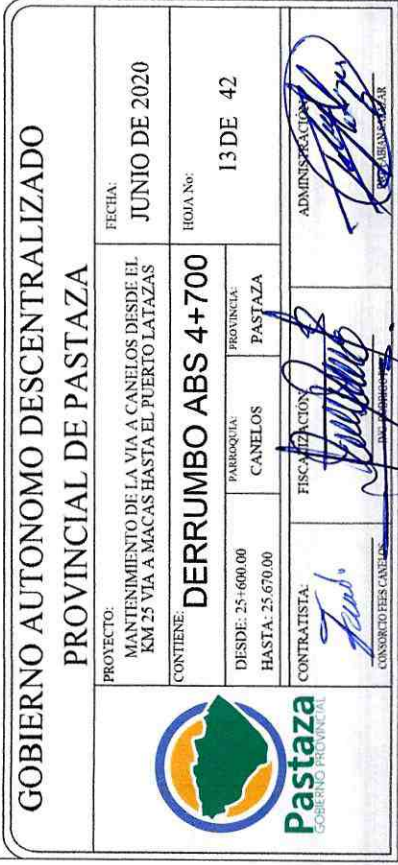 GOBIERNO AUTONOMO DESCENTRALIZADO
PROVINCIAL DE PASTAZA
PROYECTO:
MANTENIMIENTO DE LA VIA A CANELOS DESDE EL
KM 25 VIA A MACAS HASTA EL PUERTO LATAZAS
FECHA:
JUNIO DE 2020
CONTIENE:
DERRUMBO ABS 4+700
HOJA No:
13 DE 42
DESDE: 25+600.00
HASTA: 25.670.00
PARROQUIA:
CANELOS
PROVINCIA:
PASTAZA
Pastaza
GOBIERNO PROVINCIAL
CONTRATISTA:
CONSORCIO FEES CANELOS
FISCALIZACIÓN
ADMINISTRACIÓN